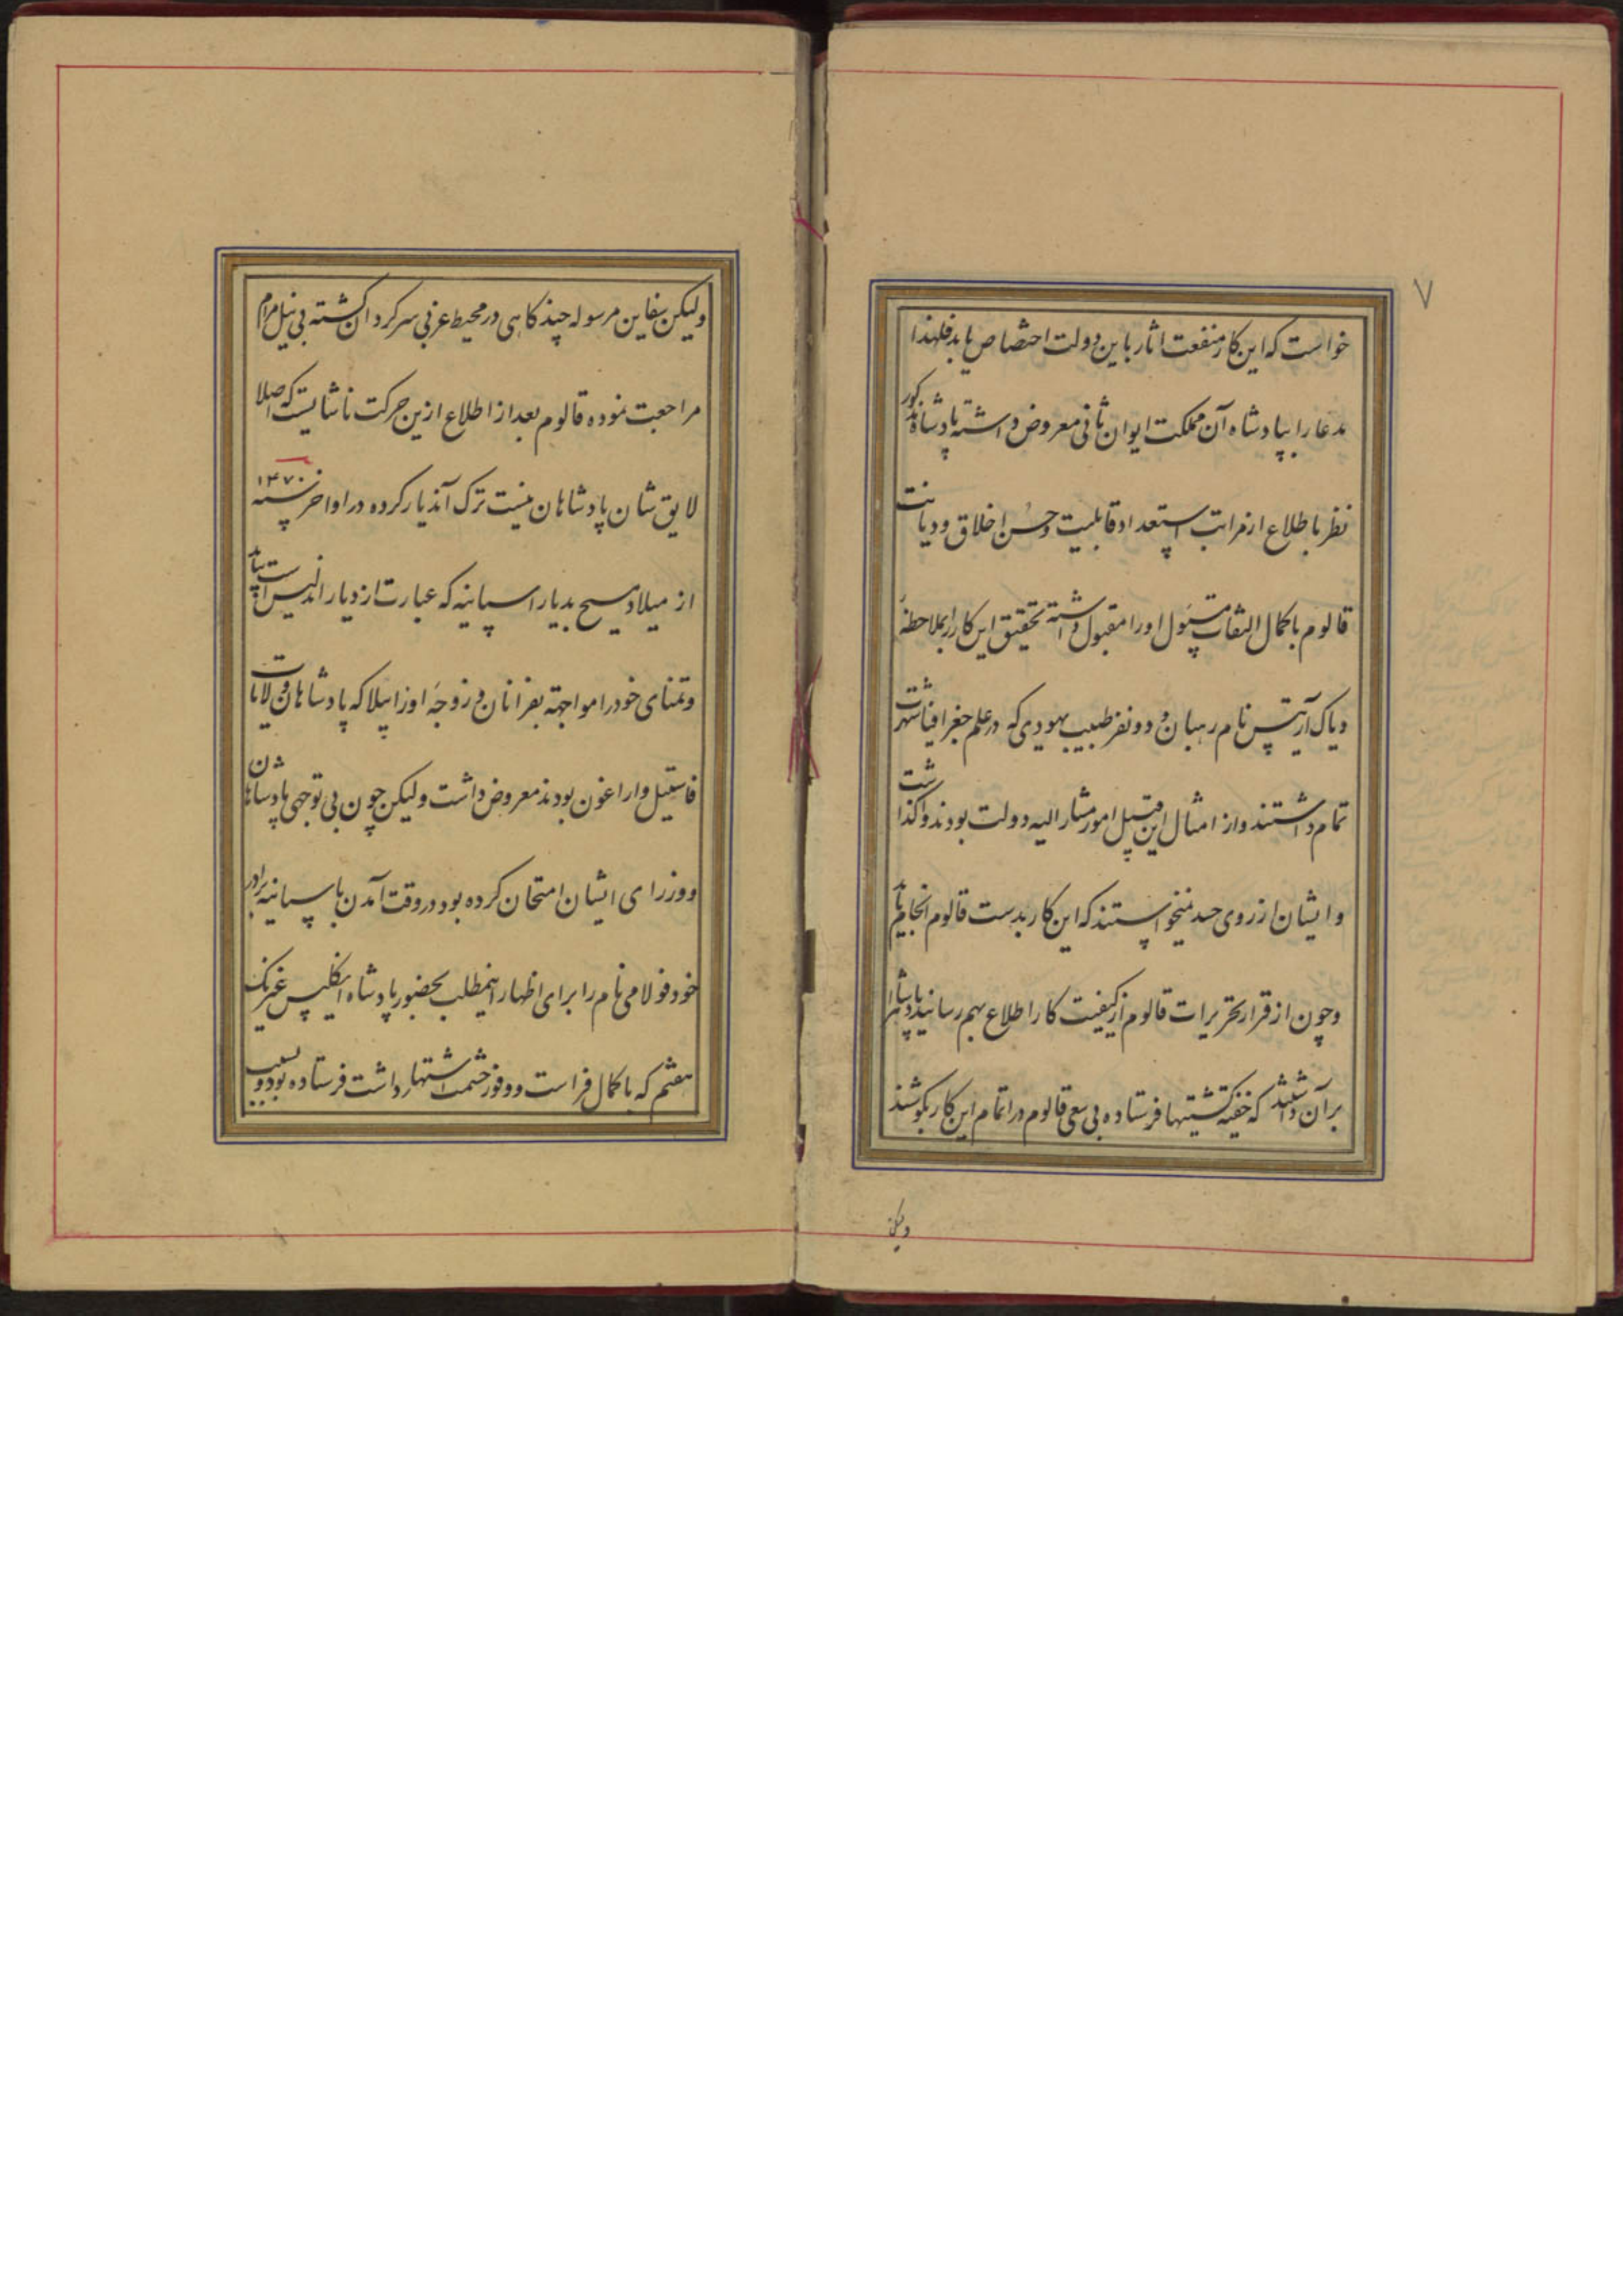 ۷
خواست که این کار منفعت اثار باین دولت اختصاص یابد فلهذا
مدعا را بپادشاه آن مملکت ایوان ثانی معروض داشته پادشاه مذکور
نظر باطلاع از مراتب استعداد و قابلیت و حسن اخلاق و دیانت
قالوم با کمال التفات مسئول او را مقبول داشته تحقیق این کار را بملاحظهٔ
دیاک آرتیس نام رهبان و دو نفر طبیب یهودی که در علم جغرافیا شهرت
تمام داشتند و از امثال این قبیل امور مشار الیه دولت بودند واکذاشت
و ایشان از روی حسد نمیخواستند که این کار بدست قالوم انجام یابد
و چون از قرار تحریرات قالوم از کیفیت کار اطلاع بهم رسانیدند پادشاه را
برآن داشتند که خفیة کشتیها فرستاده بی سعی قالوم در اتمام این کار بکوشند
ولیکن
ولیکن سفاین مرسوله چند کاهی در محیط غربی سرکردان کشته بی نیل مرام
مراجعت نموده قالوم بعد از اطلاع ازین حرکت ناشایسته که اصلا
لایق شان پادشاهان نیست ترک آندیار کرده در اواخر سنه ۱۴۷۰
از میلاد مسیح بدیار اسپانیه که عبارت از دیار اندلیس است بیامد
و تمنای خود را مواجهة بفرانان و زوجهٔ او زابیلا که پادشاهان ولایات
قاستیل و اراغون بودند معروض داشت ولیکن چون بی توجهی پادشاهان
و وزرای ایشان امتحان کرده بود در وقت آمدن باسپانیه برادر
خود فولامی نام را برای اظهار اینمطلب بحضور پادشاه انکلیس غریک
هفتم که با کمال فراست و وفور حشمت اشتهار داشت فرستاده بود و بسبب